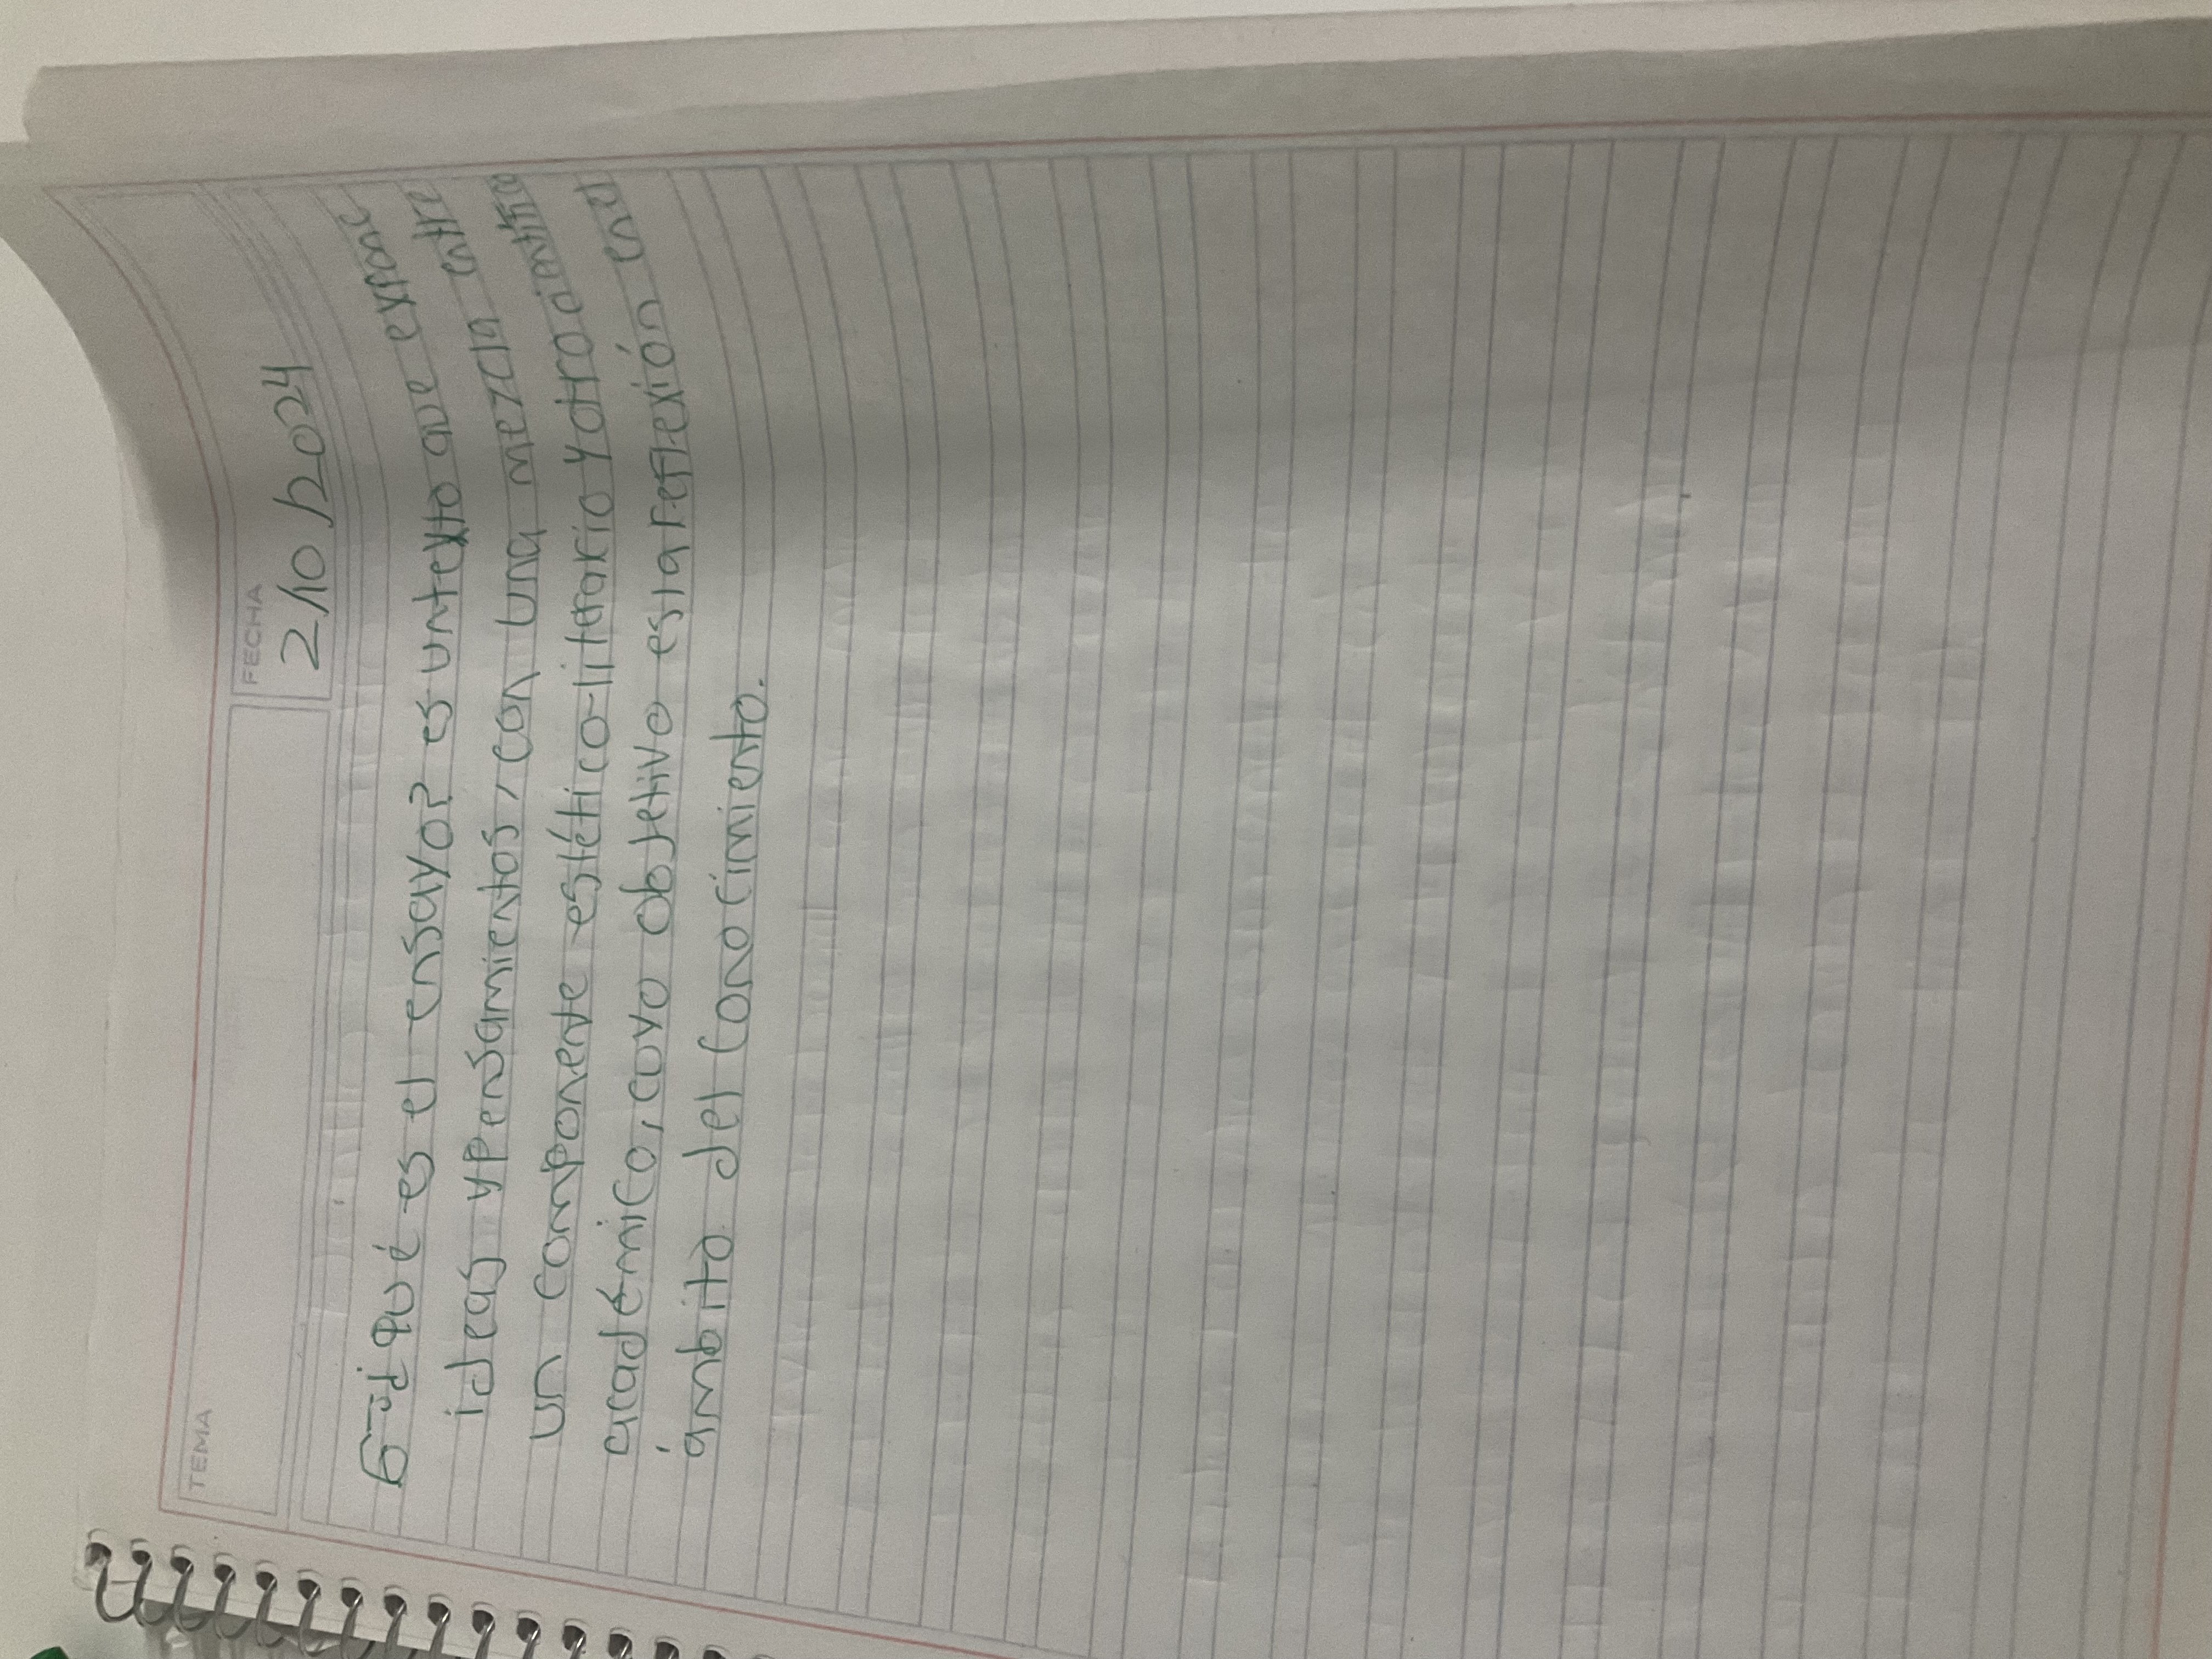 TEMA
FECHA
2/10/2024
6-¿qué es el ensayo? es un texto que expone
ideas y pensamientos, con una mezcla entre
un componente estético-literario y otro científico
académico, cuyo objetivo es la reflexión en el
ámbito del conocimiento.